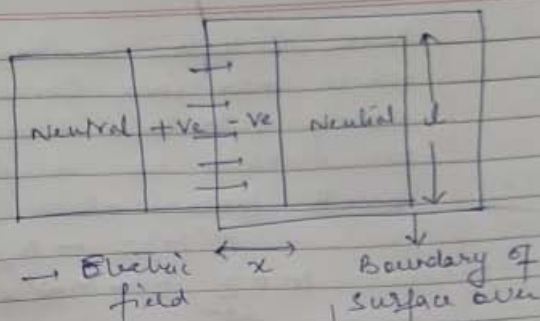 Neutral +ve -ve Neutral l
→ Electric field
x
Boundary of surface over